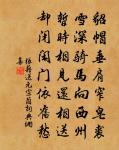 貂帽垂肩窄皂裘
雪深騎馬向西州
暫時相見還相送
却閉閑門依舊愁
張籍送元宗簡